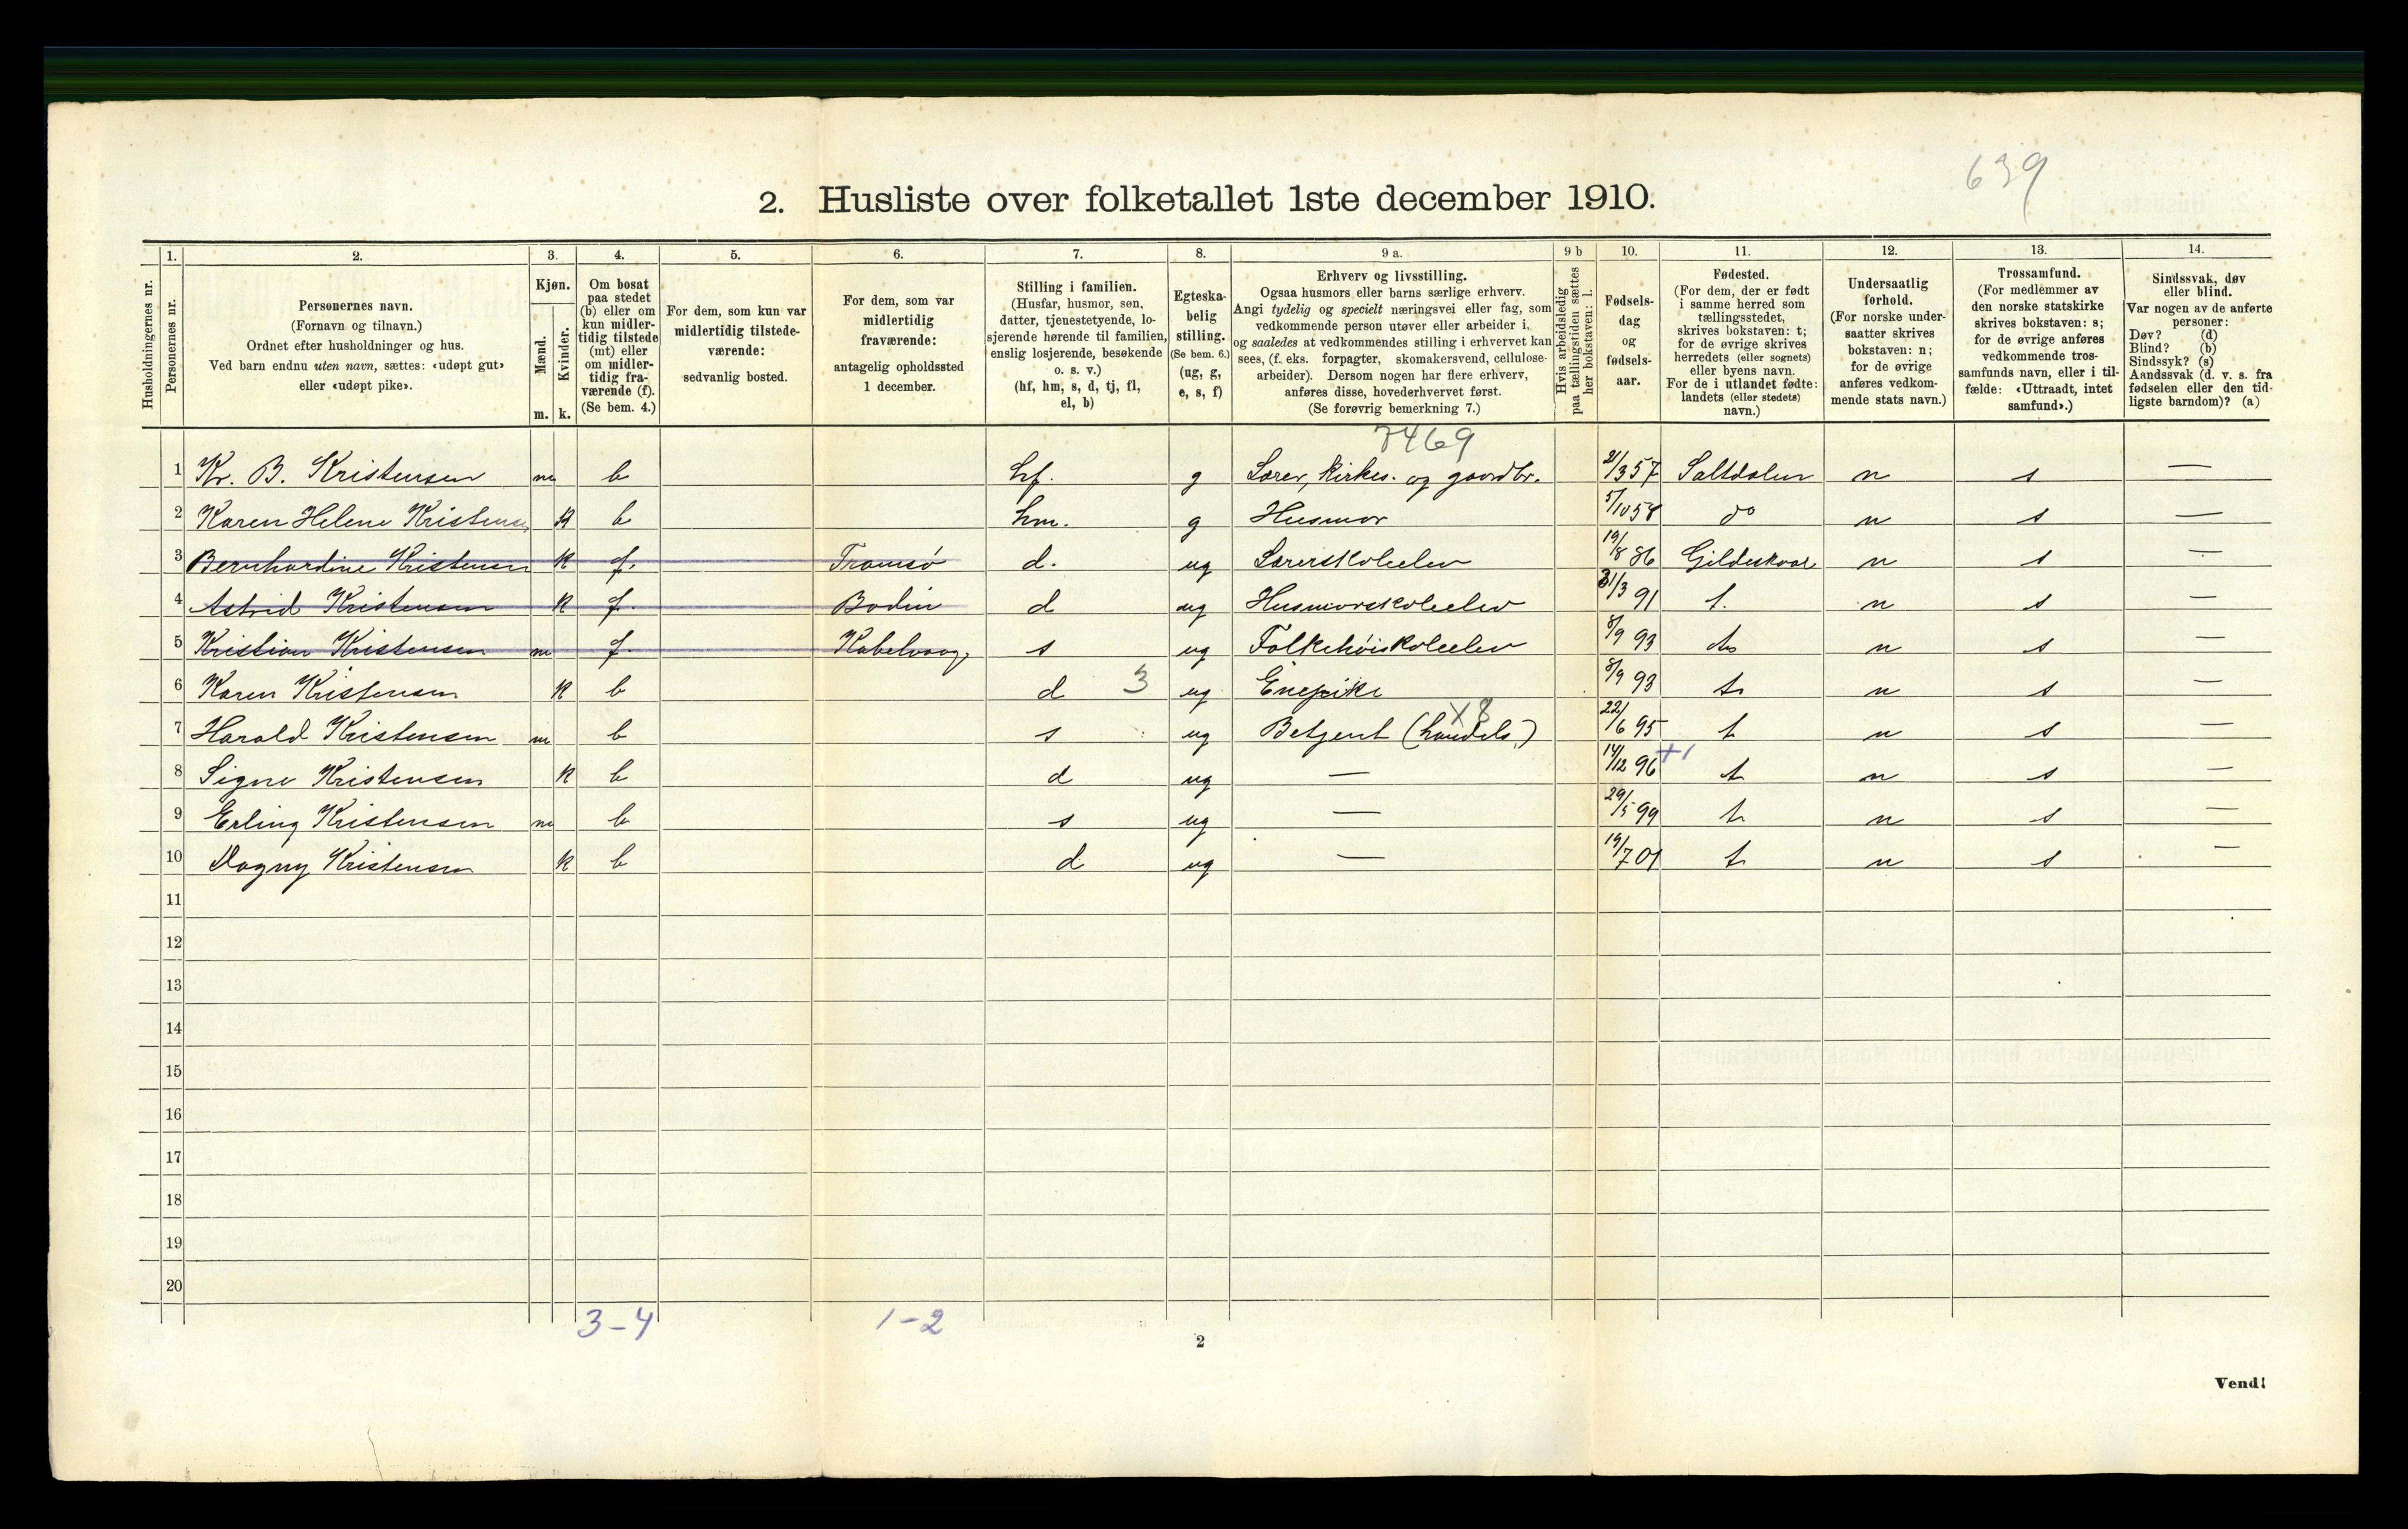 639
2. Husliste over folketallet 1ste december 1910.
Husholdningernes nr.
1.
Personernes nr.
2.
Personernes navn.
(Fornavn og tilnavn.)
Ordnet efter husholdninger og hus.
Ved barn endnu uten navn, sættes: «udøpt gut»
eller «udøpt pike».
3.
Kjøn.
Mænd.
m.
Kvinder.
k.
4.
Om bosat
paa stedet
(b) eller om
kun midler-
tidig tilstede
(mt) eller
om midler-
tidig fra-
værende (f).
(Se bem. 4.)
5.
For dem, som kun var
midlertidig tilstede-
værende:
sedvanlig bosted.
6.
For dem, som var
midlertidig
fraværende:
antagelig opholdssted
1 december.
7.
Stilling i familien.
(Husfar, husmor, søn,
datter, tjenestetyende, lo-
sjerende hørende til familien,
enslig losjerende, besøkende
o. s. v.)
(hf, hm, s, d, tj, fl,
el, b)
8.
Egteska-
belig
stilling.
(Se bem. 6.)
(ug, g,
e, s, f)
9 a.
Erhverv og livsstilling.
Ogsaa husmors eller barns særlige erhverv.
Angi tydelig og specielt næringsvei eller fag, som
vedkommende person utøver eller arbeider i,
og saaledes at vedkommendes stilling i erhvervet kan
sees, (f. eks. forpagter, skomakersvend, cellulose-
arbeider). Dersom nogen har flere erhverv,
anføres disse, hovederhvervet først.
(Se forøvrig bemerkning 7.)
9 b
Hvis arbeidsledig
paa tællingstiden sættes
her bokstaven: l.
10.
Fødsels-
dag
og
fødsels-
aar.
11.
Fødested.
(For dem, der er født
i samme herred som
tællingsstedet,
skrives bokstaven: t;
for de øvrige skrives
herredets (eller sognets)
eller byens navn.
For de i utlandet fødte:
landets (eller stedets)
navn.)
12.
Undersaatlig
forhold.
(For norske under-
saatter skrives
bokstaven: n;
for de øvrige
anføres vedkom-
mende stats navn.)
13.
Trossamfund.
(For medlemmer av
den norske statskirke
skrives bokstaven: s;
for de øvrige anføres
vedkommende tros-
samfunds navn, eller i til-
fælde: «Uttraadt, intet
samfund».)
14.
Sindssvak, døv
eller blind.
Var nogen av de anførte
personer:
Døv? (d)
Blind? (b)
Sindssyk? (s)
Aandssvak (d. v. s. fra
fødselen eller den tid-
ligste barndom)? (a)
7469
1 Kr. B. Kristensen m b hf. g Lærer, kirkes. og gaardbr. 21/3 57 Saltdalen n s —
2 Karen Helene Kristensen k b hm. g Husmor 5/10 58 do n s —
3 Bernhardine Kristensen k f. Tromsø d. ug Lærerskoleelev 19/8 86 Gildeskaal n s —
4 Astrid Kristensen k f. Bodin d ug Husmorskoleelev 31/3 91 t. n s —
5 Kristian Kristensen m f. Kabelvaag s ug Folkehøiskoleelev 8/9 93 t n s —
6 Karen Kristensen k b d 3 ug Enepike 8/9 93 t n s —
7 Harald Kristensen m b s ug Betjent (handels.) X8 22/6 95 t n s —
8 Signe Kristensen k b d ug — 14/12 96 +1 t n s —
9 Erling Kristensen m b s ug — 29/5 99 t n s —
10 Dagny Kristensen k b d ug — 19/7 01 t n s —
11
12
13
14
15
16
17
18
19
20
3-4 1-2
2
Vend!